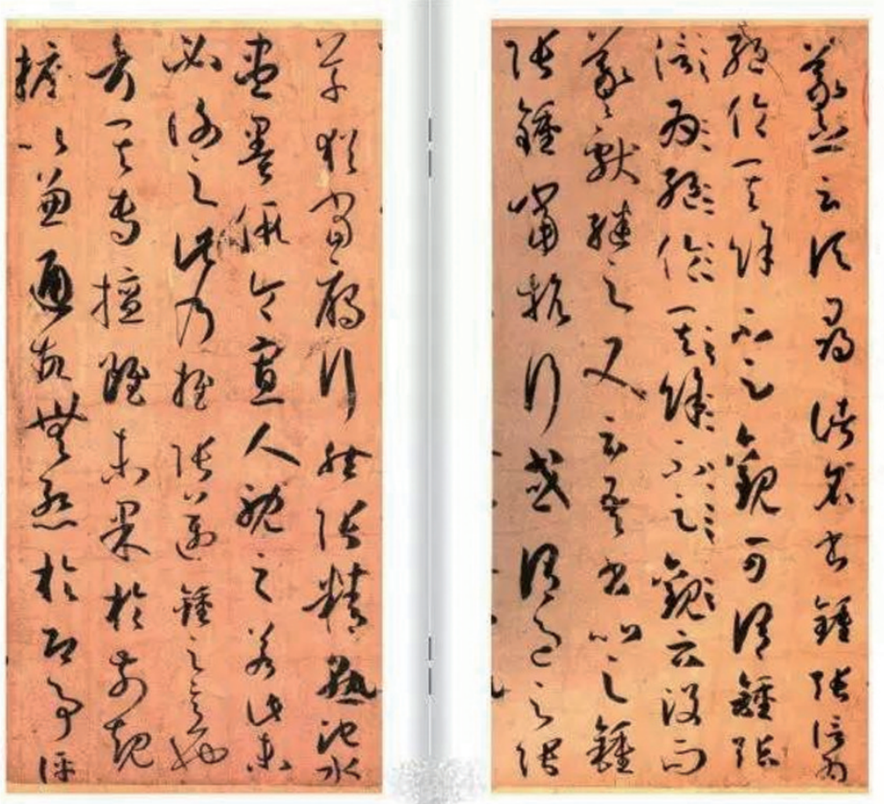 羲之云頃尋諸名書鍾張信為
絕倫其餘不足觀可謂鍾張
信為絕倫其餘不足觀云沒而
羲獻繼之又云吾書比之鍾
張鍾當抗行或謂過之張
草猶當雁行然張精熟池水
盡墨假令寡人耽之若此未
必謝之此乃推張邁鍾之意也
考其專擅雖未果於前規
摭以兼通故無慚於即事評